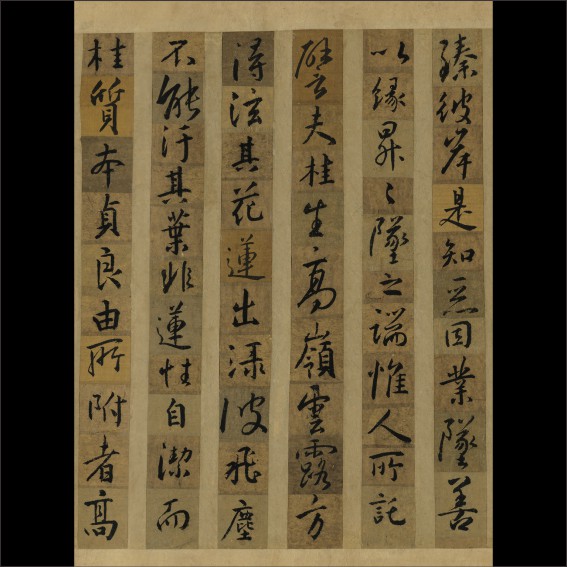 臻彼岸是知惡因業墜善
以緣昇〻墜之端惟人所託
譬夫桂生高嶺雲露方
得泫其花蓮出淥波飛塵
不能汙其葉非蓮性自潔而
桂質本貞良由所附者高